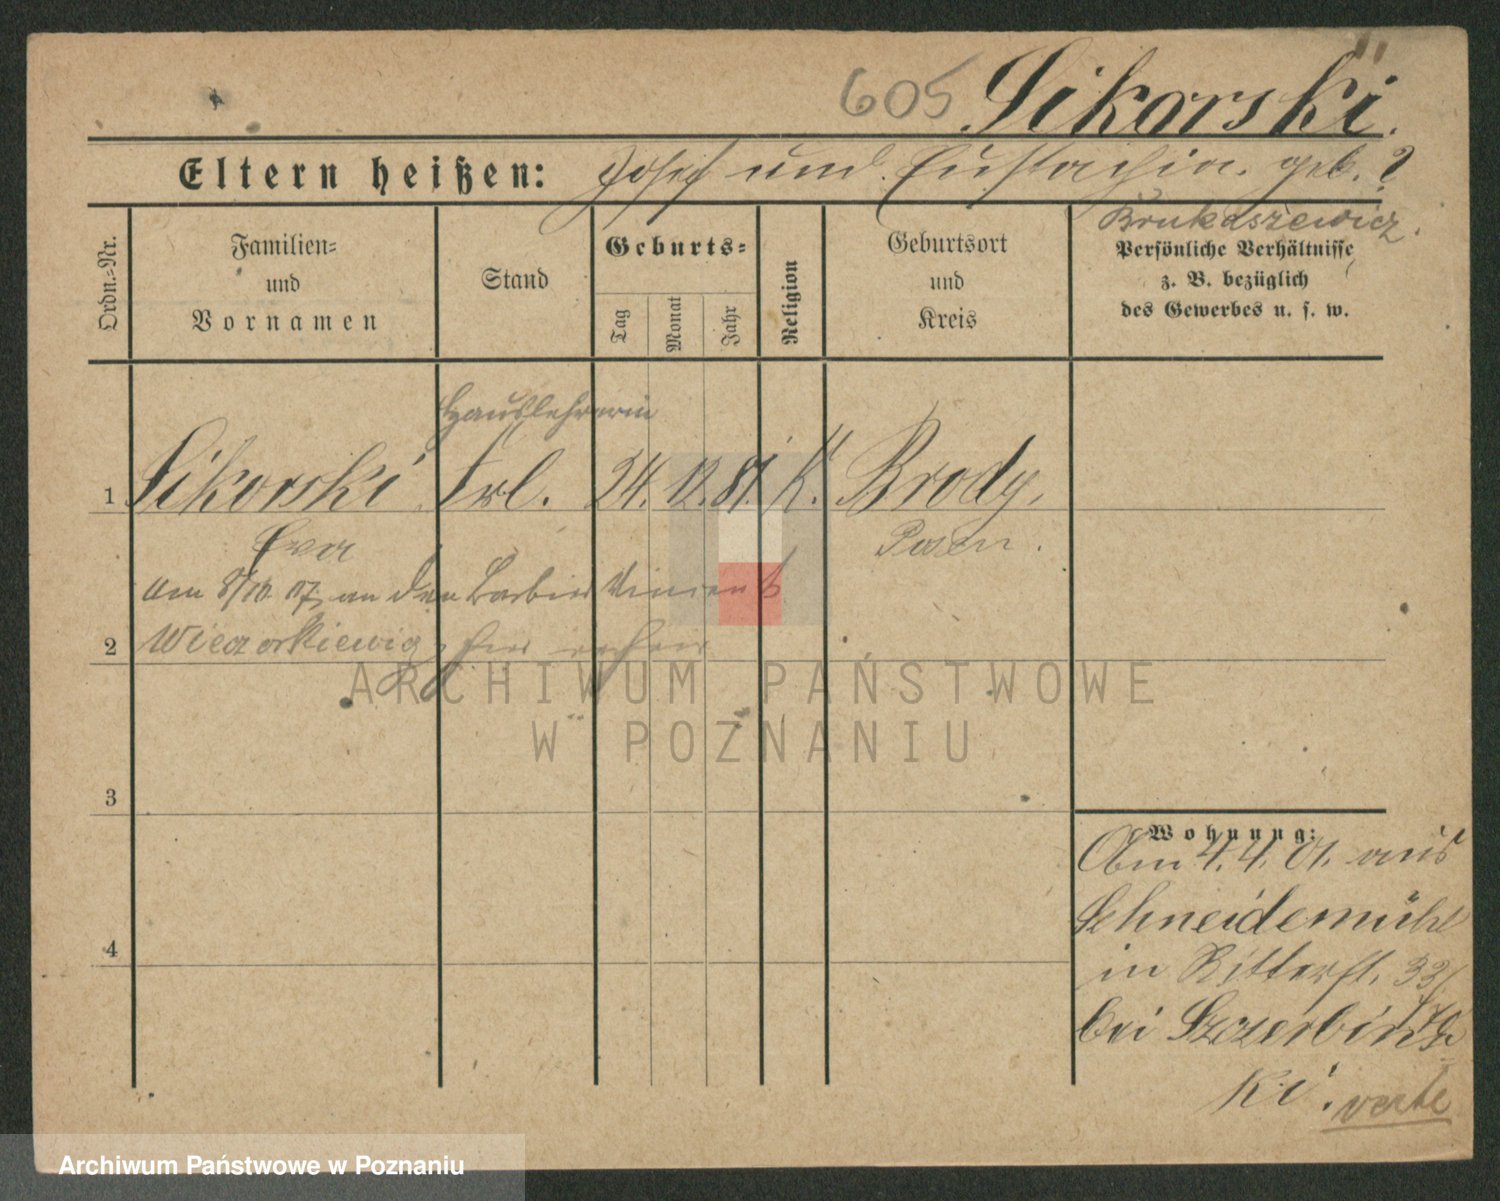 605 Sikorski.
Eltern heißen: Josef und Eustachia. geb. ?
Brukaszewicz.
Ordn.-Nr.
Familien-
und
Vornamen
Stand
Geburts-
Tag
Monat
Jahr
Religion
Geburtsort
und
Kreis
Persönliche Verhältnisse
z. B. bezüglich
des Gewerbes u. s. w.
Hauslehrerin
1 Sikorski Frl. 24. 12. 81. K. Brody.
Eva Posen.
am 8/10. 07. an den Barbier Vincent
2 Wieczorkiewicz, hier
3
4
Wohnung:
Am 4. 4. 01. aus
Schneidemühl
in Ritterst. 33/
bei Szczerbins
ki. verte
ARCHIWUM PAŃSTWOWE
W POZNANIU
Archiwum Państwowe w Poznaniu